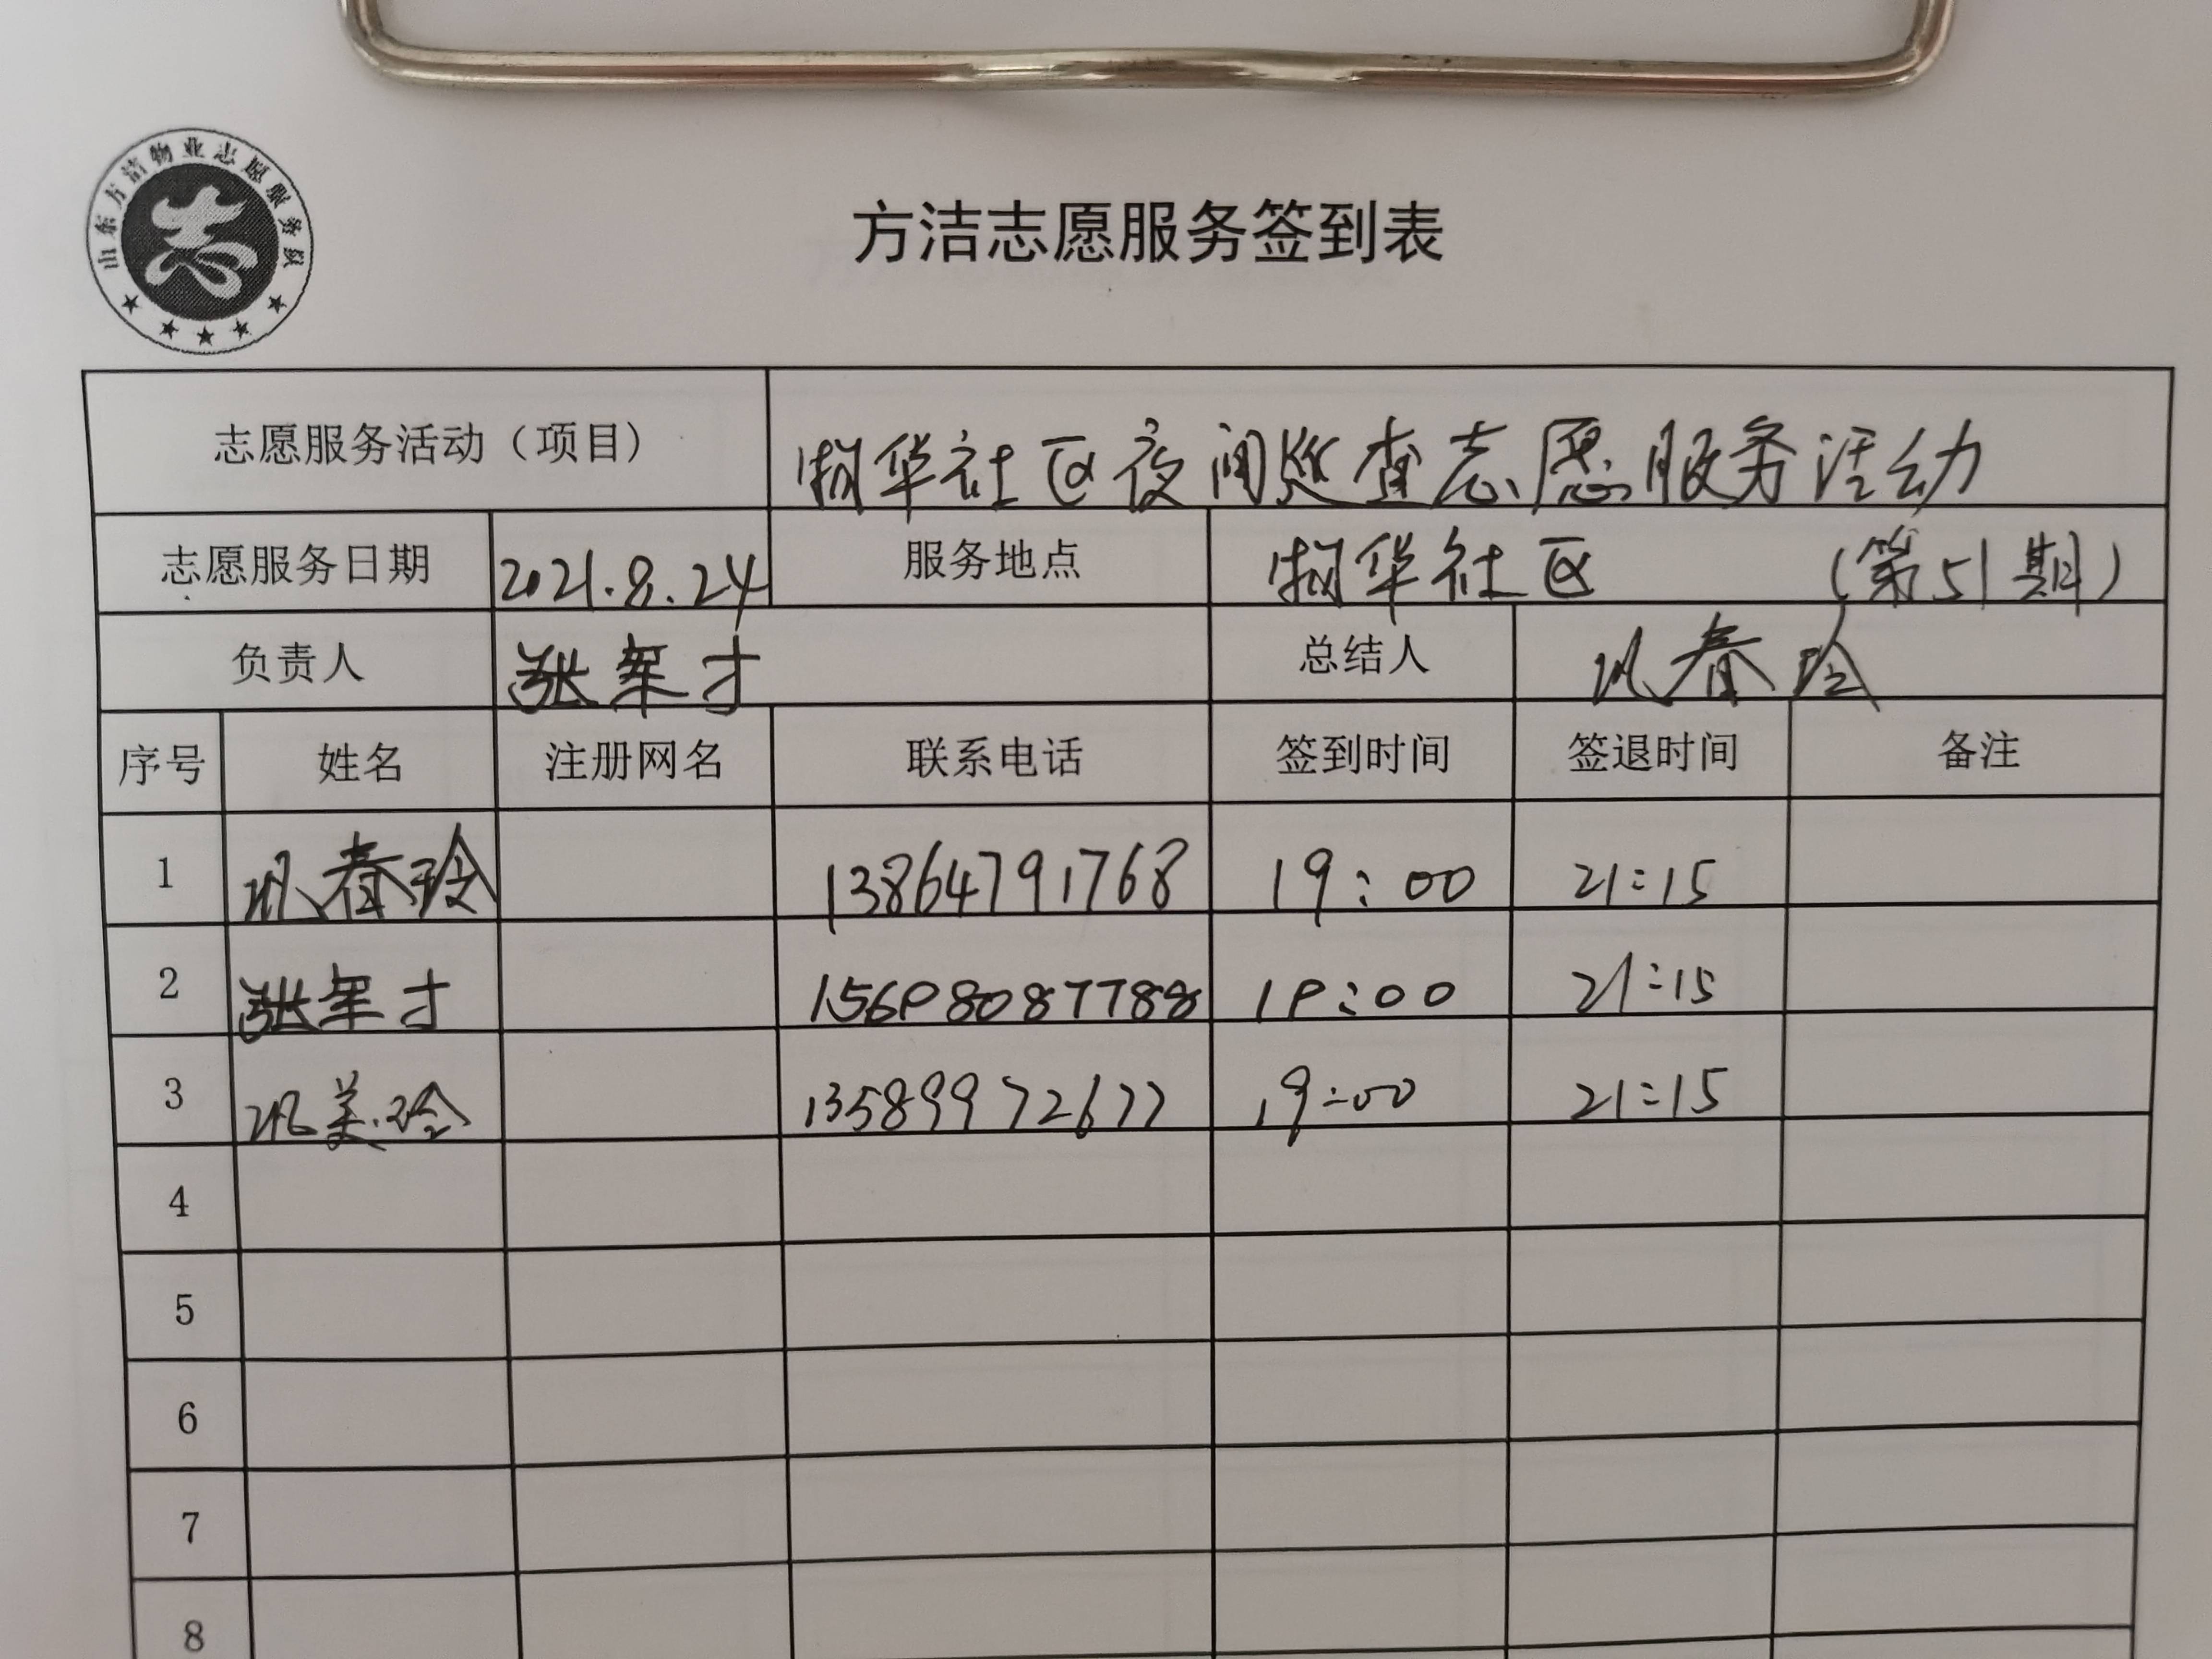 山东方洁物业志愿服务队
方洁志愿服务签到表
志愿服务活动（项目） 华社区夜间巡查志愿服务活动
志愿服务日期 2021.8.24 服务地点 华社区 （第51期）
负责人 张军才 总结人 巩春玲
序号 姓名 注册网名 联系电话 签到时间 签退时间 备注
1 巩春玲 13864791768 19:00 21:15
2 张军才 15698087788 19:00 21:15
3 巩美玲 13589972677 19:00 21:15
4
5
6
7
8